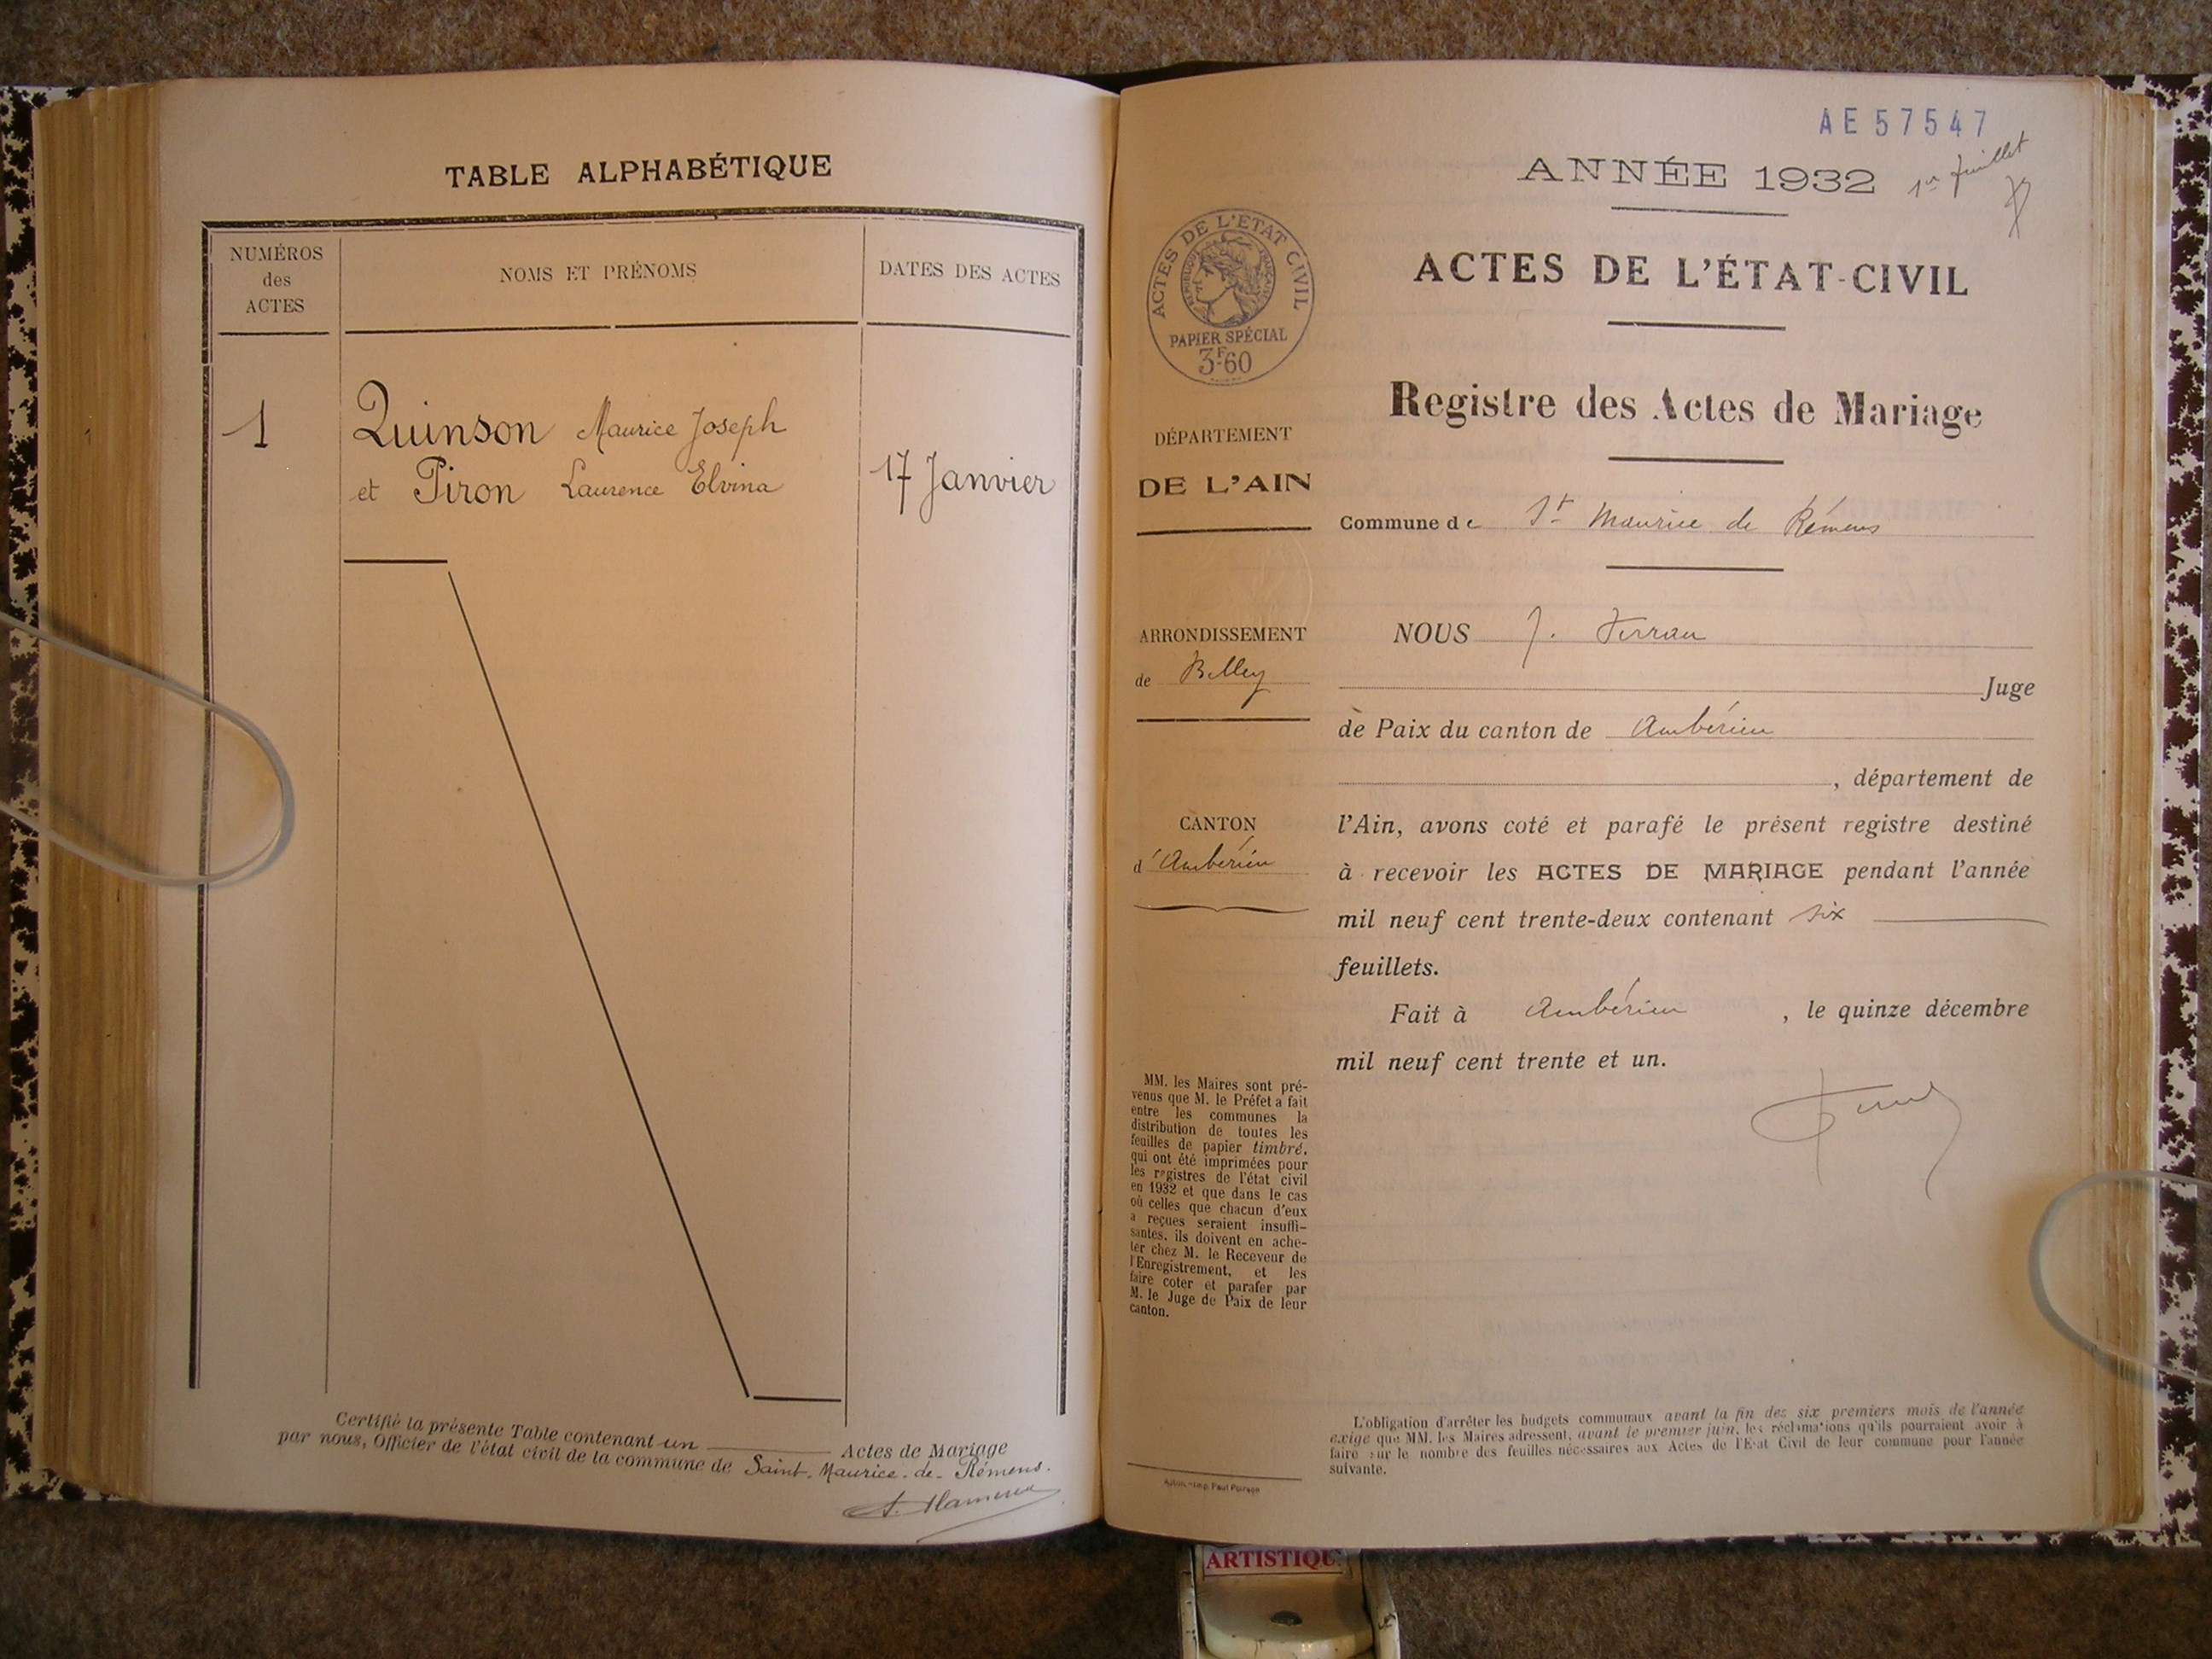 TABLE ALPHABÉTIQUE
NUMÉROS
des
ACTES
NOMS ET PRÉNOMS
DATES DES ACTES
1
Quinson Maurice Joseph
et Piron Laurence Elvina
17 Janvier
Certifié la présente Table contenant un Actes de Mariage
par nous, Officier de l'état civil de la commune de Saint-Maurice-de-Rémens.
AE57547
ANNÉE 1932
1er feuillet
ACTES DE L'ÉTAT CIVIL
RÉPUBLIQUE FRANÇAISE
PAPIER SPÉCIAL
3F60
ACTES DE L'ÉTAT-CIVIL
Registre des Actes de Mariage
DÉPARTEMENT
DE L'AIN
Commune de St Maurice de Rémens
ARRONDISSEMENT
de Belley
CANTON
d'Ambérieu
NOUS J.
Juge
de Paix du canton de Ambérieu
, département de
l'Ain, avons coté et parafé le présent registre destiné
à recevoir les ACTES DE MARIAGE pendant l'année
mil neuf cent trente-deux contenant six
feuillets.
Fait à Ambérieu , le quinze décembre
mil neuf cent trente et un.
MM. les Maires sont pré-
venus que M. le Préfet a fait
entre les communes la
distribution de toutes les
feuilles de papier timbré,
qui ont été imprimées pour
les registres de l'état civil
en 1932 et que dans le cas
où celles que chacun d'eux
a reçues seraient insuffi-
santes, ils doivent en ache-
ter chez M. le Receveur de
l'Enregistrement, et les
faire coter et parafer par
M. le Juge de Paix de leur
canton.
L'obligation d'arrêter les budgets communaux avant la fin des six premiers mois de l'année
exige que MM. les Maires adressent, avant le premier juin, les réclamations qu'ils pourraient avoir à
faire sur le nombre des feuilles nécessaires aux Actes de l'État Civil de leur commune pour l'année
suivante.
Imp. Paul
ARTISTIQU